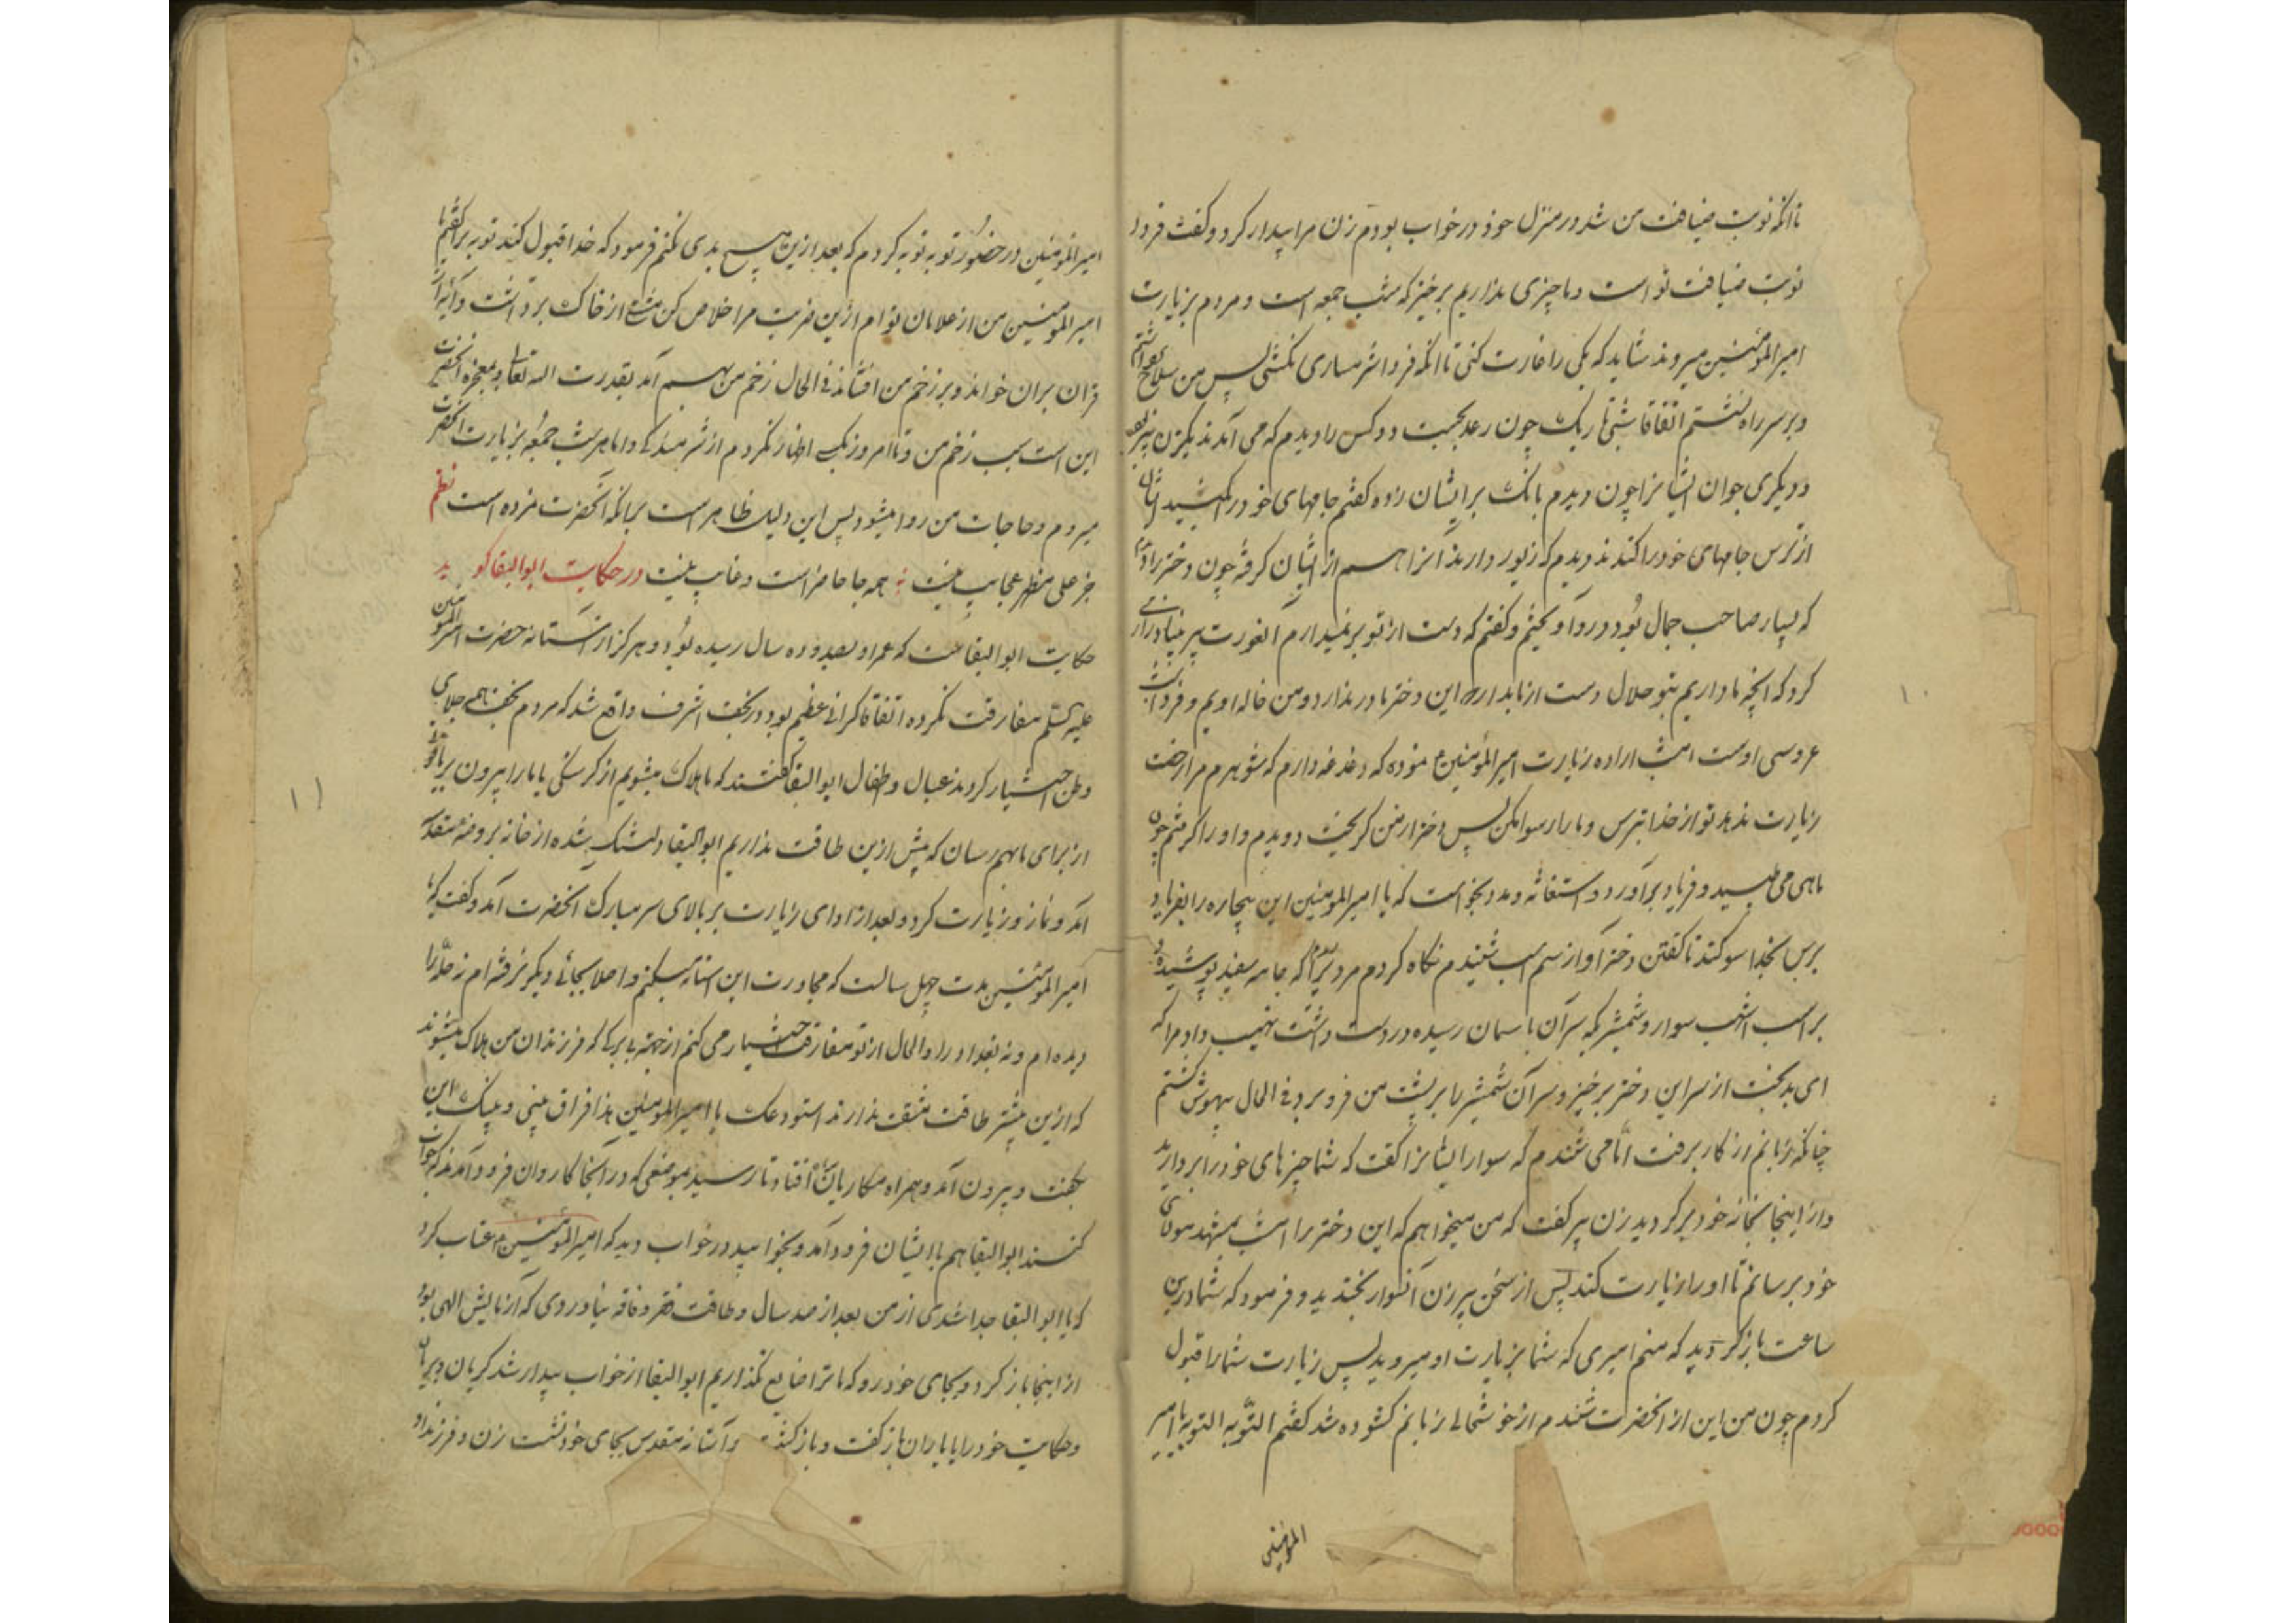 تا انکه نوبت ضیافت من شد در منزل خود در خواب بودم زن مرا بیدار کرد و کفت فردا
نوبت ضیافت تو است و ما چیزی نداریم برخیز که شب جمعه است و مردم بزیارت
امیرالمؤمنین میروند شاید که یکی را غارت کنی تا انکه فردا شرمساری نکشی پس من سلاح برداشتم
و بر سر راه نشستم اتفاقا شبی تاریک چون رعد بجست دو کس را دیدم که می آمدند یکی زن پیر بود
و دیکری جوان ایشانرا چون دیدم بانک بر ایشان زده کفتم جامهای خود را بکشید ایشان
از ترس جامهای خود را کندند و دیدم که زیور دارند آنرا هم از ایشان کرفته چون دختر را دیدم
که بسیار صاحب جمال بود در او آویختم و کفتم که دست از تو برنمیدارم آنعورت پیر بنیاد زاری
کرد که انچه ما داریم بتو حلال دست از ما بدار که این دختر مادر ندارد و من خاله اویم و فردا شب
عروسی اوست امشب اراده زیارت امیرالمؤمنین ع نموده که دغدغه دارم که شوهرم مرا رخصت
زیارت ندهد تو از خدا بترس و ما را رسوا مکن پس دختر از من کریخت دویدم و او را کرفتم چون
ماهی می طپید و فریاد برآورد و استغاثه و مدد بخواست که یا امیرالمومنین این بیچاره را بفریاد
برس بخدا سوکند تا کفتن دختر آواز سم اسب شنیدم نکاه کردم مردیرا که جامه سفید پوشیده و
بر اسب اشهب سوار و شمشیر که سر آن باسمان رسیده در دست داشت نهیب داد مرا که
ای بدبخت از سر این دختر برخیز و سر آن شمشیر را بر پشت من فرو برد فی الحال بیهوش کشتم
چنانکه زبانم از کار برفت اما می شنیدم که سوار ایشانرا کفت که شما چیزهای خود را بردارید
و از اینجا بخانه خود برکردید زن پیر کفت که من میخواهم که این دختر را امشب بمشهد مولای
خود برسانم تا او را زیارت کند پس از سخن پیرزن آنسوار بخندید و فرمود که شما درین
ساعت بازکردید که منم امیری که شما بزیارت او میروید پس زیارت شما را قبول
کردم چون من این از انحضرت شنیدم از خوشحالی زبانم کشوده شد کفتم التوبه التوبه یا امیر
المومنین
۱۰
امیرالمؤمنین در حضور تو توبه کردم که بعد ازین هیچ بدی نکنم فرمود که خدا قبول کند توبه ترا کفتم یا
امیرالمؤمنین من از غلامان توام ازین ضربت مرا خلاص کن مشتی از خاک برداشت و آیه از
قران بران خواند و بر زخم من افشاند فی الحال زخم من بهم آمد بقدرت الله تعالی و معجزه انحضرت
این است سبب زخم من و تا امروز بکسی اظهار نکردم از شرمندکی و اما هر شب جمعه بزیارت انحضرت
میروم و حاجات من روا میشود پس این دلیل ظاهر است بر انکه انحضرت نمرده است نظم
جز علی مظهر عجایب نیست همه جا حاضر است و غایب نیست در حکایت ابوالبقا کوید
حکایت ابوالبقا است که عمر او بصد و ده سال رسیده بود و هرکز از آستانه حضرت امیرالمؤمنین
علیه السلم مفارقت نکرده اتفاقا کرانی عظیم بود در نجف اشرف واقع شد که مردم نجف تمامی جلای
وطن اختیار کردند عیال و اطفال ابوالبقا کفتند که ما هلاک میشویم از کرسنکی یا ما را بیرون بر یا قوتی
از برای ما بهم رسان که بیش ازین طاقت نداریم ابوالبقا دلتنک شده از خانه بروضه مقدسه
آمد و نماز و زیارت کرد و بعد از ادای زیارت بر بالای سر مبارک آنحضرت آمد و کفت که یا
امیرالمؤمنین مدت چهل سالست که مجاورت این استانه میکنم و اصلا بجائی دیکر نرفته ام نه حله را
دیده ام و نه بغداد را و الحال از تو مفارقت اختیار می کنم از جهه بی برکی که فرزندان من هلاک میشوند
که ازین بیشتر طاقت مشقت ندارند استودعک یا امیرالمؤمنین هذا فراق بینی و بینک این
بکفت و بیرون آمد و همراه مکاریان افتاد تا رسید بموضعی که در انجا کاروان فرود آمدند که خواب
کنند ابوالبقا هم با ایشان فرود آمد و بخوابید در خواب دید که امیرالمؤمنین ع عتاب کرد
که یا ابوالبقا جدا شدی از من بعد از صد سال و طاقت فقر و فاقه نیاوردی که آزمایش الهی بود
از اینجا بازکرد و بجای خود رو که ما ترا ضایع نکذاریم ابوالبقا از خواب بیدار شد کریان و بریان
و حکایت خود را با یاران بازکفت و بازکشت و آستانه مقدس بجای خود نشست زن و فرزند او
۱۱